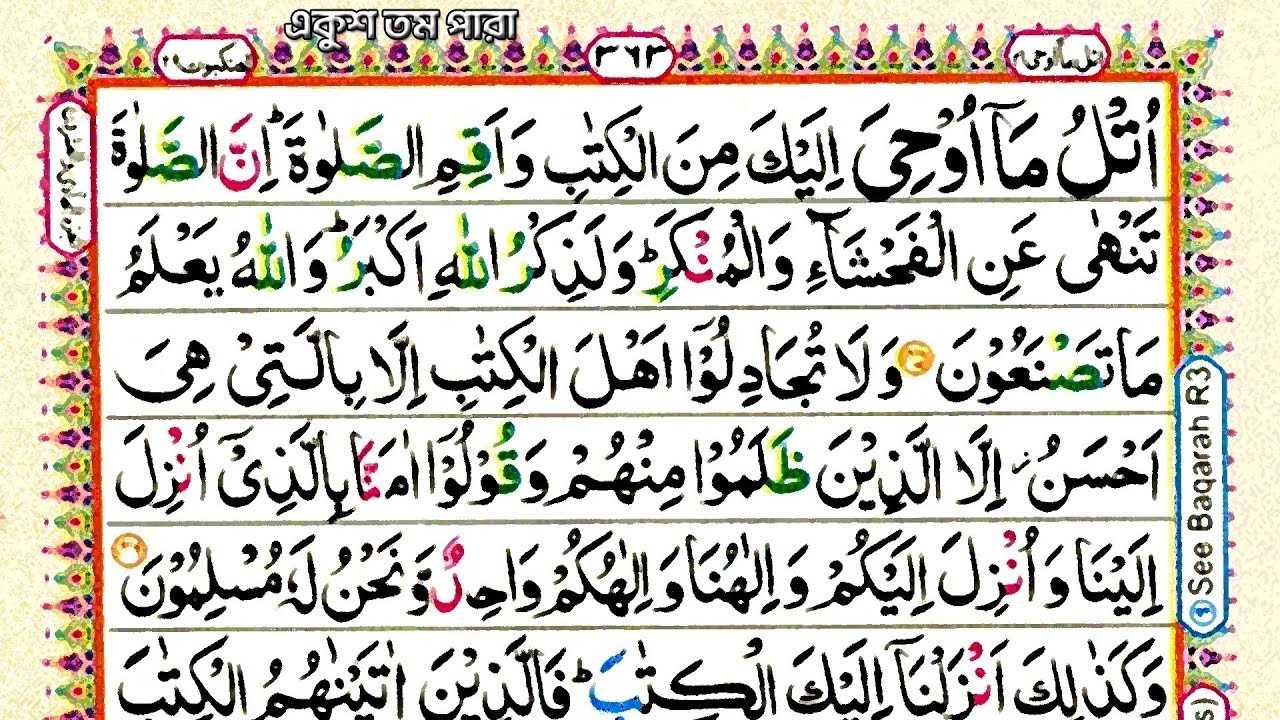 একুশ তম পারা
اتل ما اوحی ۲۱
٣٦٣
اُتْلُ مَاۤ اُوْحِیَ اِلَیْكَ مِنَ الْكِتٰبِ وَاَقِمِ الصَّلٰوةَ ؕ اِنَّ الصَّلٰوةَ
تَنْهٰی عَنِ الْفَحْشَآءِ وَالْمُنْكَرِ ؕ وَلَذِكْرُ اللّٰهِ اَكْبَرُ ؕ وَاللّٰهُ یَعْلَمُ
مَا تَصْنَعُوْنَ وَلَا تُجَادِلُوْۤا اَهْلَ الْكِتٰبِ اِلَّا بِالَّتِیْ هِیَ
اَحْسَنُ ۖ اِلَّا الَّذِیْنَ ظَلَمُوْا مِنْهُمْ وَقُوْلُوْۤا اٰمَنَّا بِالَّذِیْۤ اُنْزِلَ
اِلَیْنَا وَاُنْزِلَ اِلَیْكُمْ وَاِلٰهُنَا وَاِلٰهُكُمْ وَاحِدٌ وَّنَحْنُ لَهٗ مُسْلِمُوْنَ
وَكَذٰلِكَ اَنْزَلْنَاۤ اِلَیْكَ الْكِتٰبَ ؕ فَالَّذِیْنَ اٰتَیْنٰهُمُ الْكِتٰبَ
See Baqarah R3